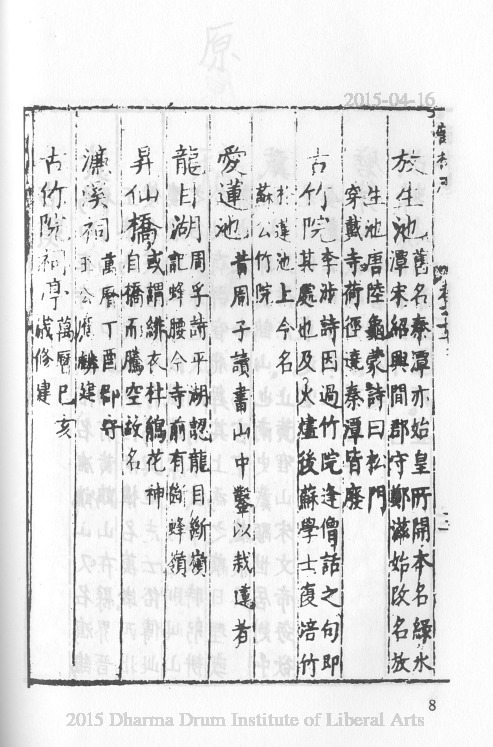 原
2015-04-16
放生池 舊名秦潭亦始皇所開本名綠水
潭宋紹興間郡守鄭滋始改名放
生池唐陸龜蒙詩曰松門
穿戴寺荷徑遶秦潭皆廢
古竹院 李涉詩因過竹院逢僧話之句即
其處也及火燼後蘇學士復培竹
於蓮池上今名
蘇公竹院
愛蓮池 昔周子讀書山中鑿以栽蓮者
龍目湖 周孚詩平湖認龍目斷嶺
記蜂腰今寺前有蜂嶺
昇仙橋 或謂緋衣杜鵑花神
自橋而騰空故名
濂溪祠 萬曆丁酉郡守
王公應麟建
古竹院祠亭 萬曆己亥
歲修建
8
2015 Dharma Drum Institute of Liberal Arts